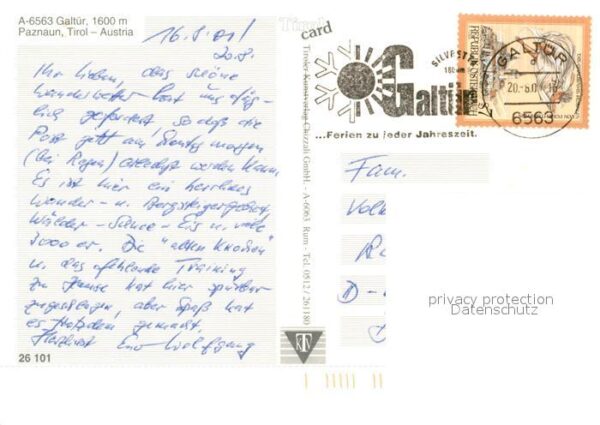 A-6563 Galtür, 1600 m
Paznaun, Tirol – Austria
16.8.01/
20.8.
Ihr Lieben, das schöne
Wanderwetter hat uns
gefordert so daß die
Post jetzt am Sonntagmorgen
(bei Regen) erledigt werden kann.
Es ist hier ein herrliches
Wander- u. Bergsteigergebiet
Wälder - - Eis u. viele
3000 er. Die "alten Knochen"
u. das fehlende Training
zu Hause hat hier spürbar
zugeschlagen, aber Spaß hat
es trotzdem gemacht.
Herzlichst Euer Wolfgang
26 101
Tirol
card
Tiroler Kunstverlag Chizzali GmbH. - A-6063 Rum - Tel. 0512 / 261180
KTV
SILVES
Galtür
...Ferien zu jeder Jahreszeit.
GALTÜR
20.-8.0
6563
REPUBLIK
S7
Fam.
Volk
D-
privacy protection
Datenschutz